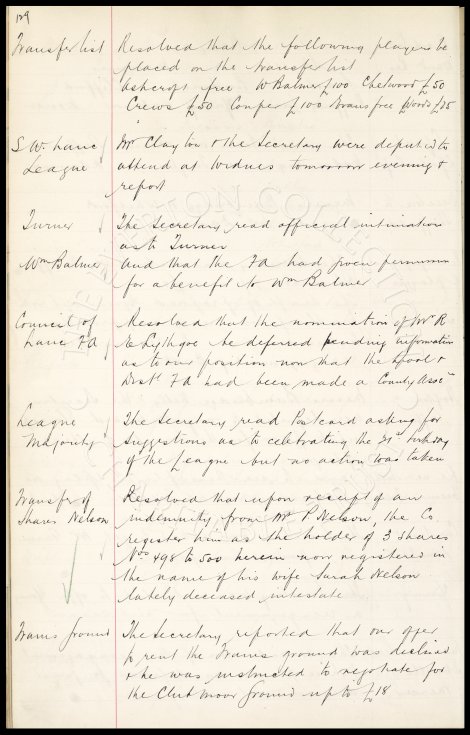 129
Transfer list Resolved that the following players be
placed on the transfer list
Ashcroft free W Balmer £100 Chetwood £50
Crews £50 Couper £100 Evans free Woods £25
S W Lanc League Mr Clayton & the Secretary were deputed to
attend at Widnes tomorrow evening &
report
Turner The Secretary read official intimation
as to Turner
Wm Balmer and that the FA had given permission
for a benefit to Wm Balmer
Council of Lanc FA Resolved that the nomination of Mr R
E Lythgoe be deferred pending information
as to our position now that the Lpool &
Dist FA had been made a County Assn
League Majority The Secretary read Postcard asking for
suggestions as to celebrating the 21st birthday
of the League but no action was taken
Transfer of Shares Nelson Resolved that upon receipt of an
indemnity from Mr P Nelson, the Co
register him as the holder of 3 shares
Nos 498 to 500 herein now registered in
the name of his wife Sarah Nelson
lately deceased intestate
Trams ground The Secretary reported that our offer
to rent the Trams ground was declined
& he was instructed to negotiate for
the Club Moor ground up to £18